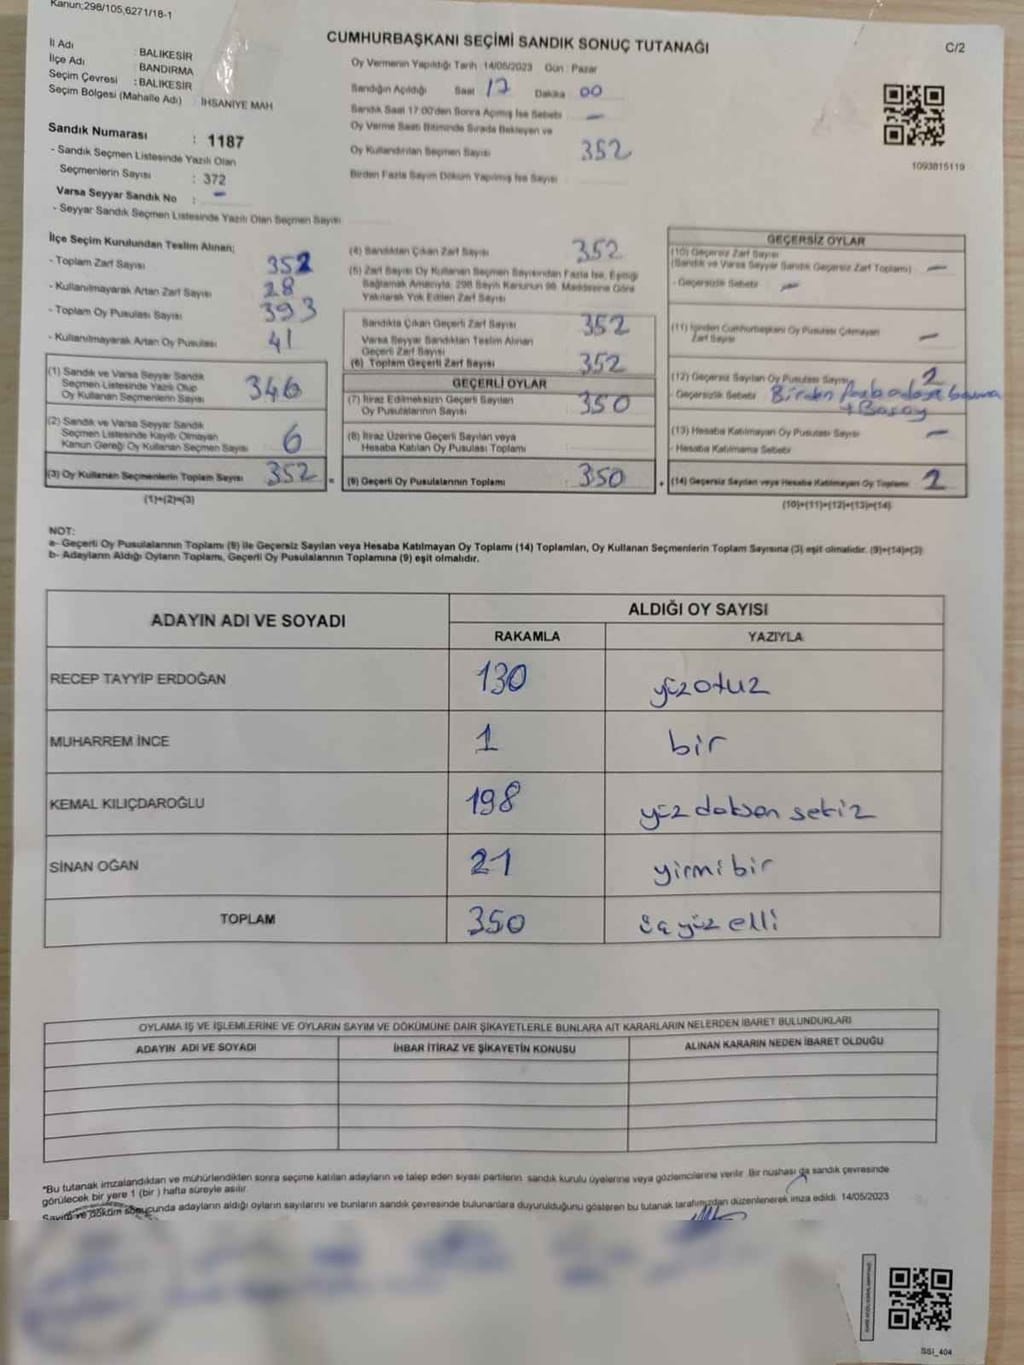 Kanun;298/105,6271/18-1
CUMHURBAŞKANI SEÇİMİ SANDIK SONUÇ TUTANAĞI
C/2
İl Adı : BALIKESİR
İlçe Adı : BANDIRMA
Seçim Çevresi : BALIKESİR
Seçim Bölgesi (Mahalle Adı) : İHSANİYE MAH
Sandık Numarası : 1187
- Sandık Seçmen Listesinde Yazılı Olan
Seçmenlerin Sayısı : 372
Varsa Seyyar Sandık No : -
- Seyyar Sandık Seçmen Listesinde Yazılı Olan Seçmen Sayısı
Oy Vermenin Yapıldığı Tarih :14/05/2023 Gün : Pazar
Sandığın Açıldığı Saat 17 Dakika 00
Sandık Saat 17:00'den Sonra Açılmış İse Sebebi -
Oy Verme Saati Bitiminde Sırada Bekleyen ve
Oy Kullandırılan Seçmen Sayısı 352
Birden Fazla Sayım Döküm Yapılmış İse Sayısı
1093815119
İlçe Seçim Kurulundan Teslim Alınan;
- Toplam Zarf Sayısı 352
- Kullanılmayarak Artan Zarf Sayısı 28
- Toplam Oy Pusulası Sayısı 393
- Kullanılmayarak Artan Oy Pusulası 41
(1) Sandık ve Varsa Seyyar Sandık
Seçmen Listesinde Yazılı Olup
Oy Kullanan Seçmenlerin Sayısı 346
(2) Sandık ve Varsa Seyyar Sandık
Seçmen Listesinde Kayıtlı Olmayan
Kanun Gereği Oy Kullanan Seçmen Sayısı 6
(3) Oy Kullanan Seçmenlerin Toplam Sayısı 352
(1)+(2)=(3)
(4) Sandıktan Çıkan Zarf Sayısı 352
(5) Zarf Sayısı Oy Kullanan Seçmen Sayısından Fazla İse, Eşitliği
Sağlamak Amacıyla, 298 Sayılı Kanunun 98. Maddesine Göre
Yakılarak Yok Edilen Zarf Sayısı
Sandıkta Çıkan Geçerli Zarf Sayısı 352
Varsa Seyyar Sandıktan Teslim Alınan
Geçerli Zarf Sayısı
(6) Toplam Geçerli Zarf Sayısı 352
GEÇERLİ OYLAR
(7) İtiraz Edilmeksizin Geçerli Sayılan
Oy Pusulalarının Sayısı 350
(8) İtiraz Üzerine Geçerli Sayılan veya
Hesaba Katılan Oy Pusulası Toplamı
(9) Geçerli Oy Pusulalarının Toplamı 350
GEÇERSİZ OYLAR
(10) Geçersiz Zarf Sayısı
(Sandık ve Varsa Seyyar Sandık Geçersiz Zarf Toplamı) -
- Geçersizlik Sebebi -
(11) İçinden Cumhurbaşkanı Oy Pusulası Çıkmayan
Zarf Sayısı -
(12) Geçersiz Sayılan Oy Pusulası Sayısı 2
- Geçersizlik Sebebi Birden fazla adaya basma
(13) Hesaba Katılmayan Oy Pusulası Sayısı -
- Hesaba Katılmama Sebebi
(14) Geçersiz Sayılan veya Hesaba Katılmayan Oy Toplamı 2
(10)+(11)+(12)+(13)=(14)
NOT:
a- Geçerli Oy Pusulalarının Toplamı (9) ile Geçersiz Sayılan veya Hesaba Katılmayan Oy Toplamı (14) Toplamları, Oy Kullanan Seçmenlerin Toplam Sayısına (3) eşit olmalıdır. (9)+(14)=(3)
b- Adayların Aldığı Oyların Toplamı, Geçerli Oy Pusulalarının Toplamına (9) eşit olmalıdır.
ADAYIN ADI VE SOYADI
ALDIĞI OY SAYISI
RAKAMLA YAZIYLA
RECEP TAYYİP ERDOĞAN 130 yüzotuz
MUHARREM İNCE 1 bir
KEMAL KILIÇDAROĞLU 198 yüz doksan sekiz
SİNAN OĞAN 21 yirmibir
TOPLAM 350 üçyüz elli
OYLAMA İŞ VE İŞLEMLERİNE VE OYLARIN SAYIM VE DÖKÜMÜNE DAİR ŞİKAYETLERLE BUNLARA AİT KARARLARIN NELERDEN İBARET BULUNDUKLARI
ADAYIN ADI VE SOYADI İHBAR İTİRAZ VE ŞİKAYETİN KONUSU ALINAN KARARIN NEDEN İBARET OLDUĞU
*Bu tutanak imzalandıktan ve mühürlendikten sonra seçime katılan adayların ve talep eden siyasi partilerin sandık kurulu üyelerine veya gözlemcilerine verilir. Bir nüshası da sandık çevresinde
görülecek bir yere 1 (bir ) hafta süreyle asılır.
Sayım ve döküm sonucunda adayların aldığı oyların sayılarını ve bunların sandık çevresinde bulunanlara duyurulduğunu gösteren bu tutanak tarafımızdan düzenlenerek imza edildi. 14/05/2023
SSİ_404